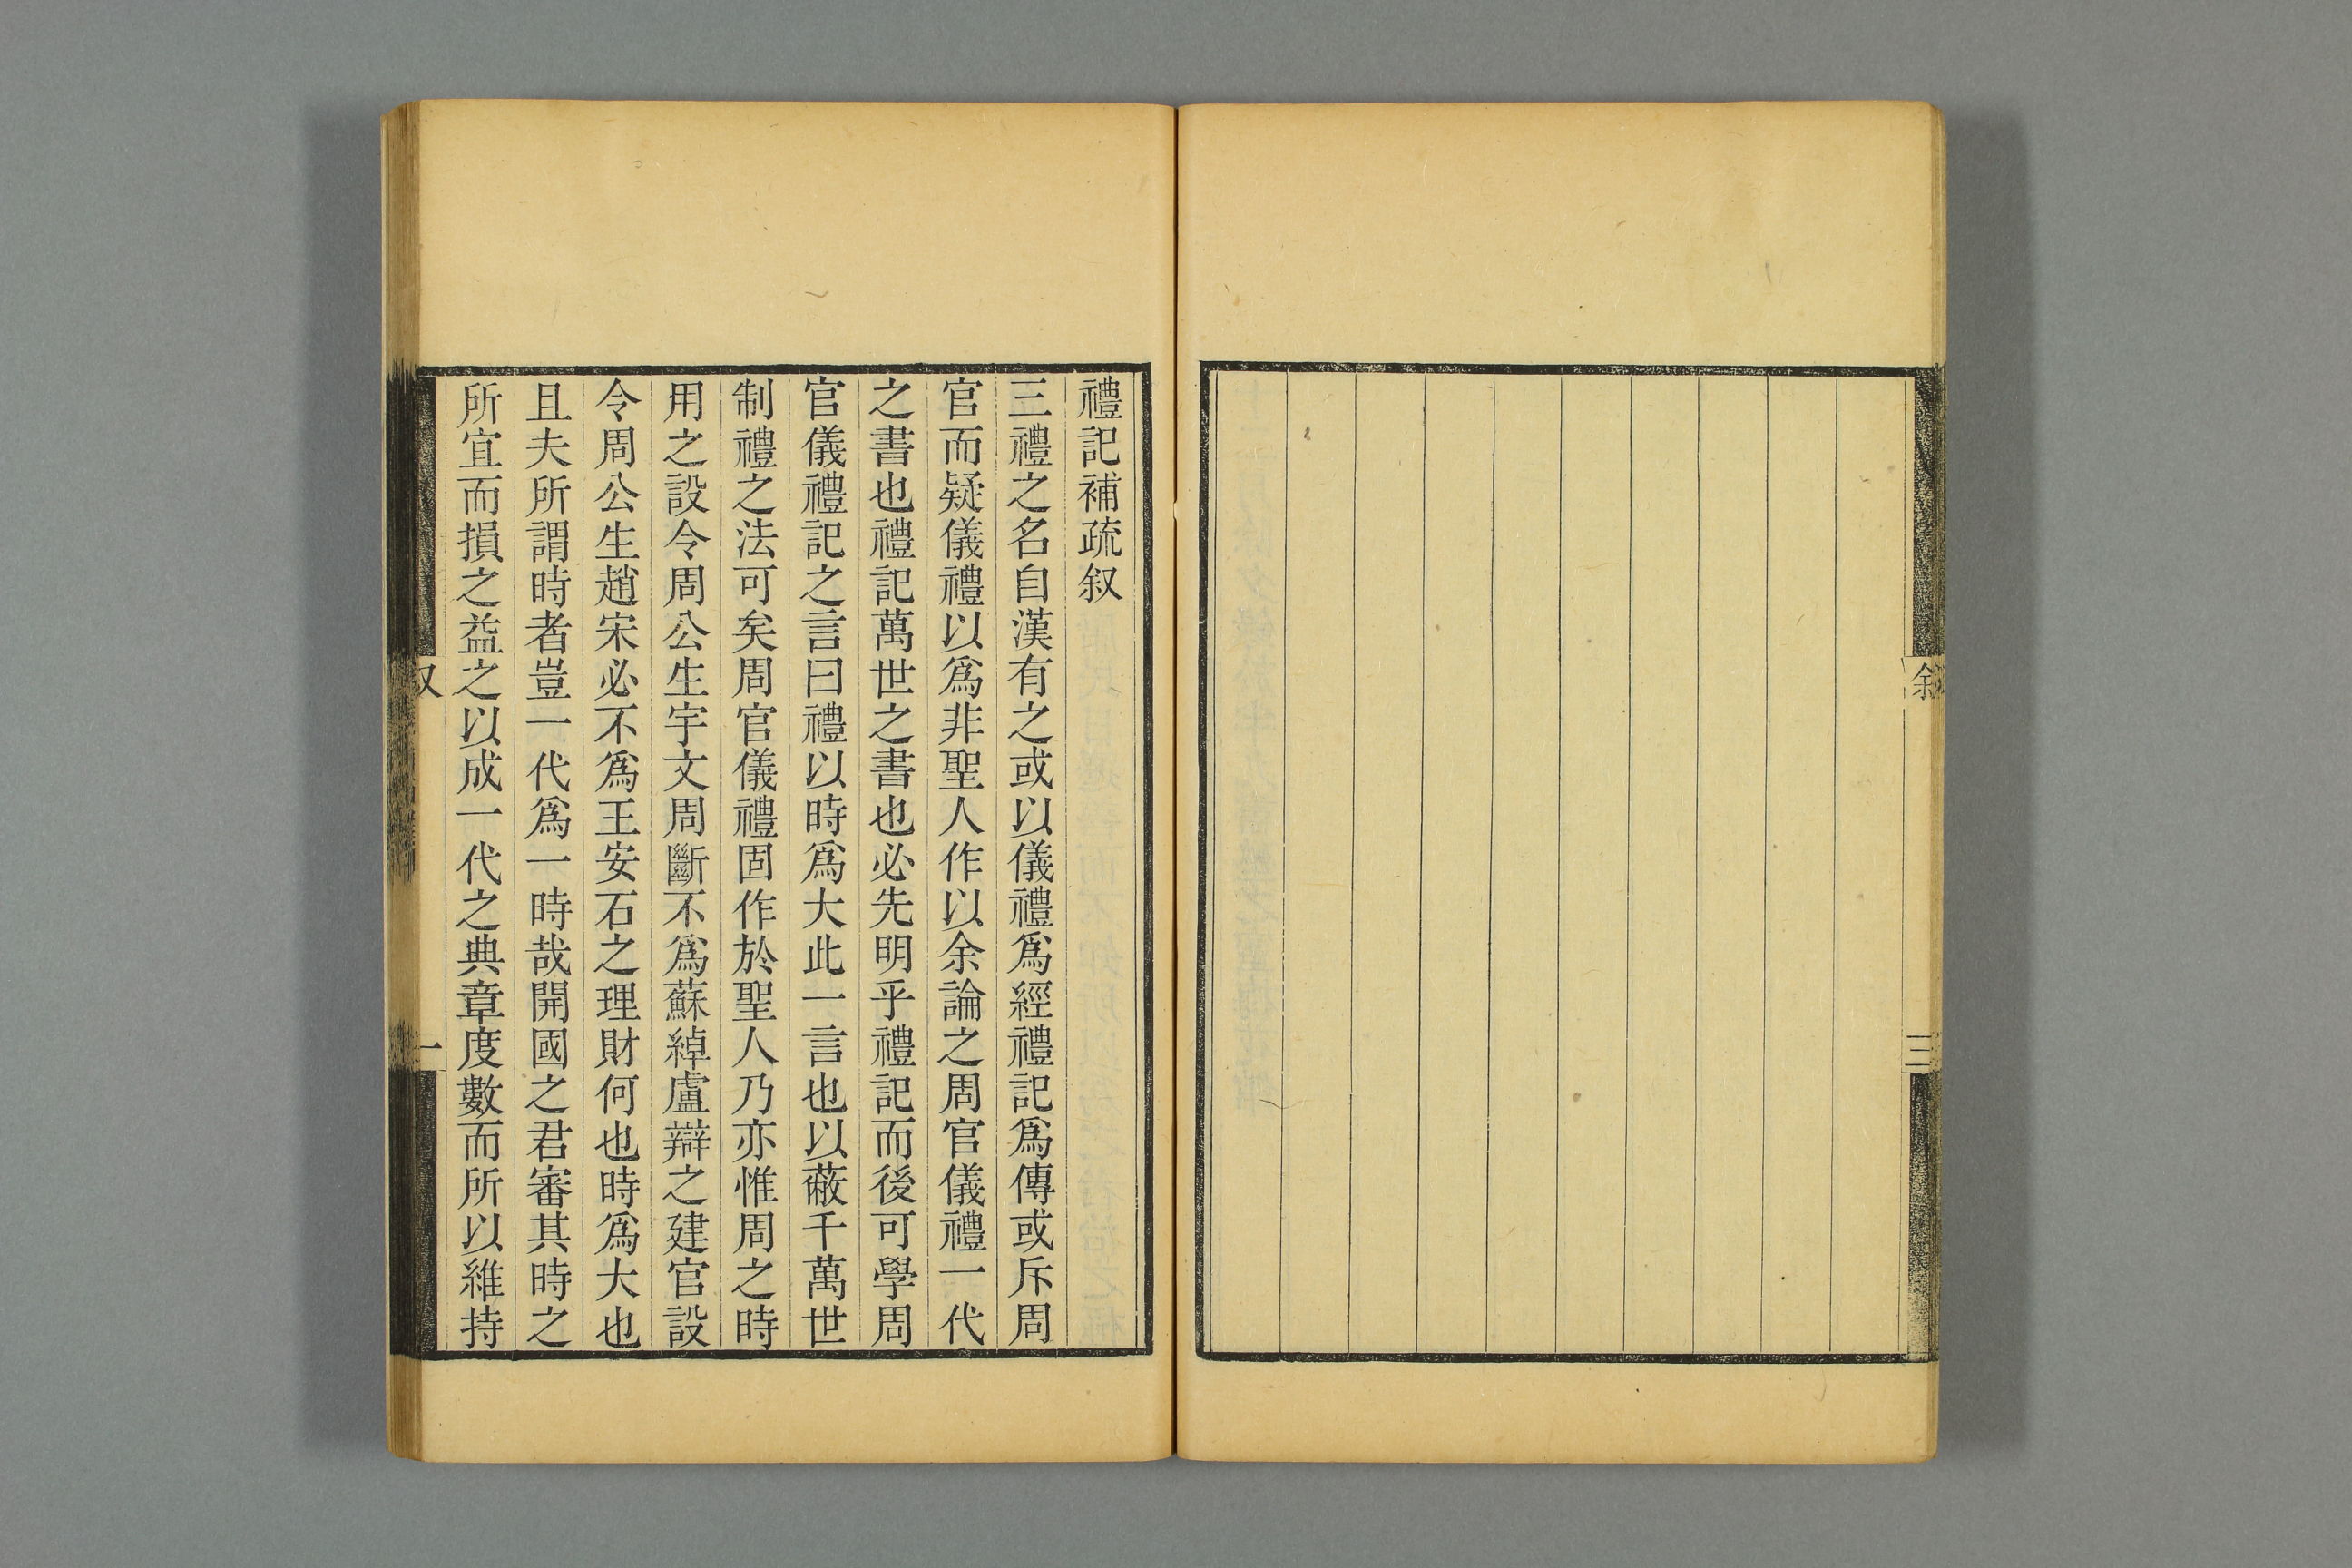 叙
三
禮記補疏叙
三禮之名自漢有之或以儀禮爲經禮記爲傳或斥周
官而疑儀禮以爲非聖人作以余論之周官儀禮一代
之書也禮記萬世之書也必先明乎禮記而後可學周
官儀禮記之言曰禮以時爲大此一言也以蔽千萬世
制禮之法可矣周官儀禮固作於聖人乃亦惟周之時
用之設令周公生宇文周斷不爲蘇綽盧辯之建官設
令周公生趙宋必不爲王安石之理財何也時爲大也
且夫所謂時者豈一代爲一時哉開國之君審其時之
所宜而損之益之以成一代之典章度數而所以維持
一